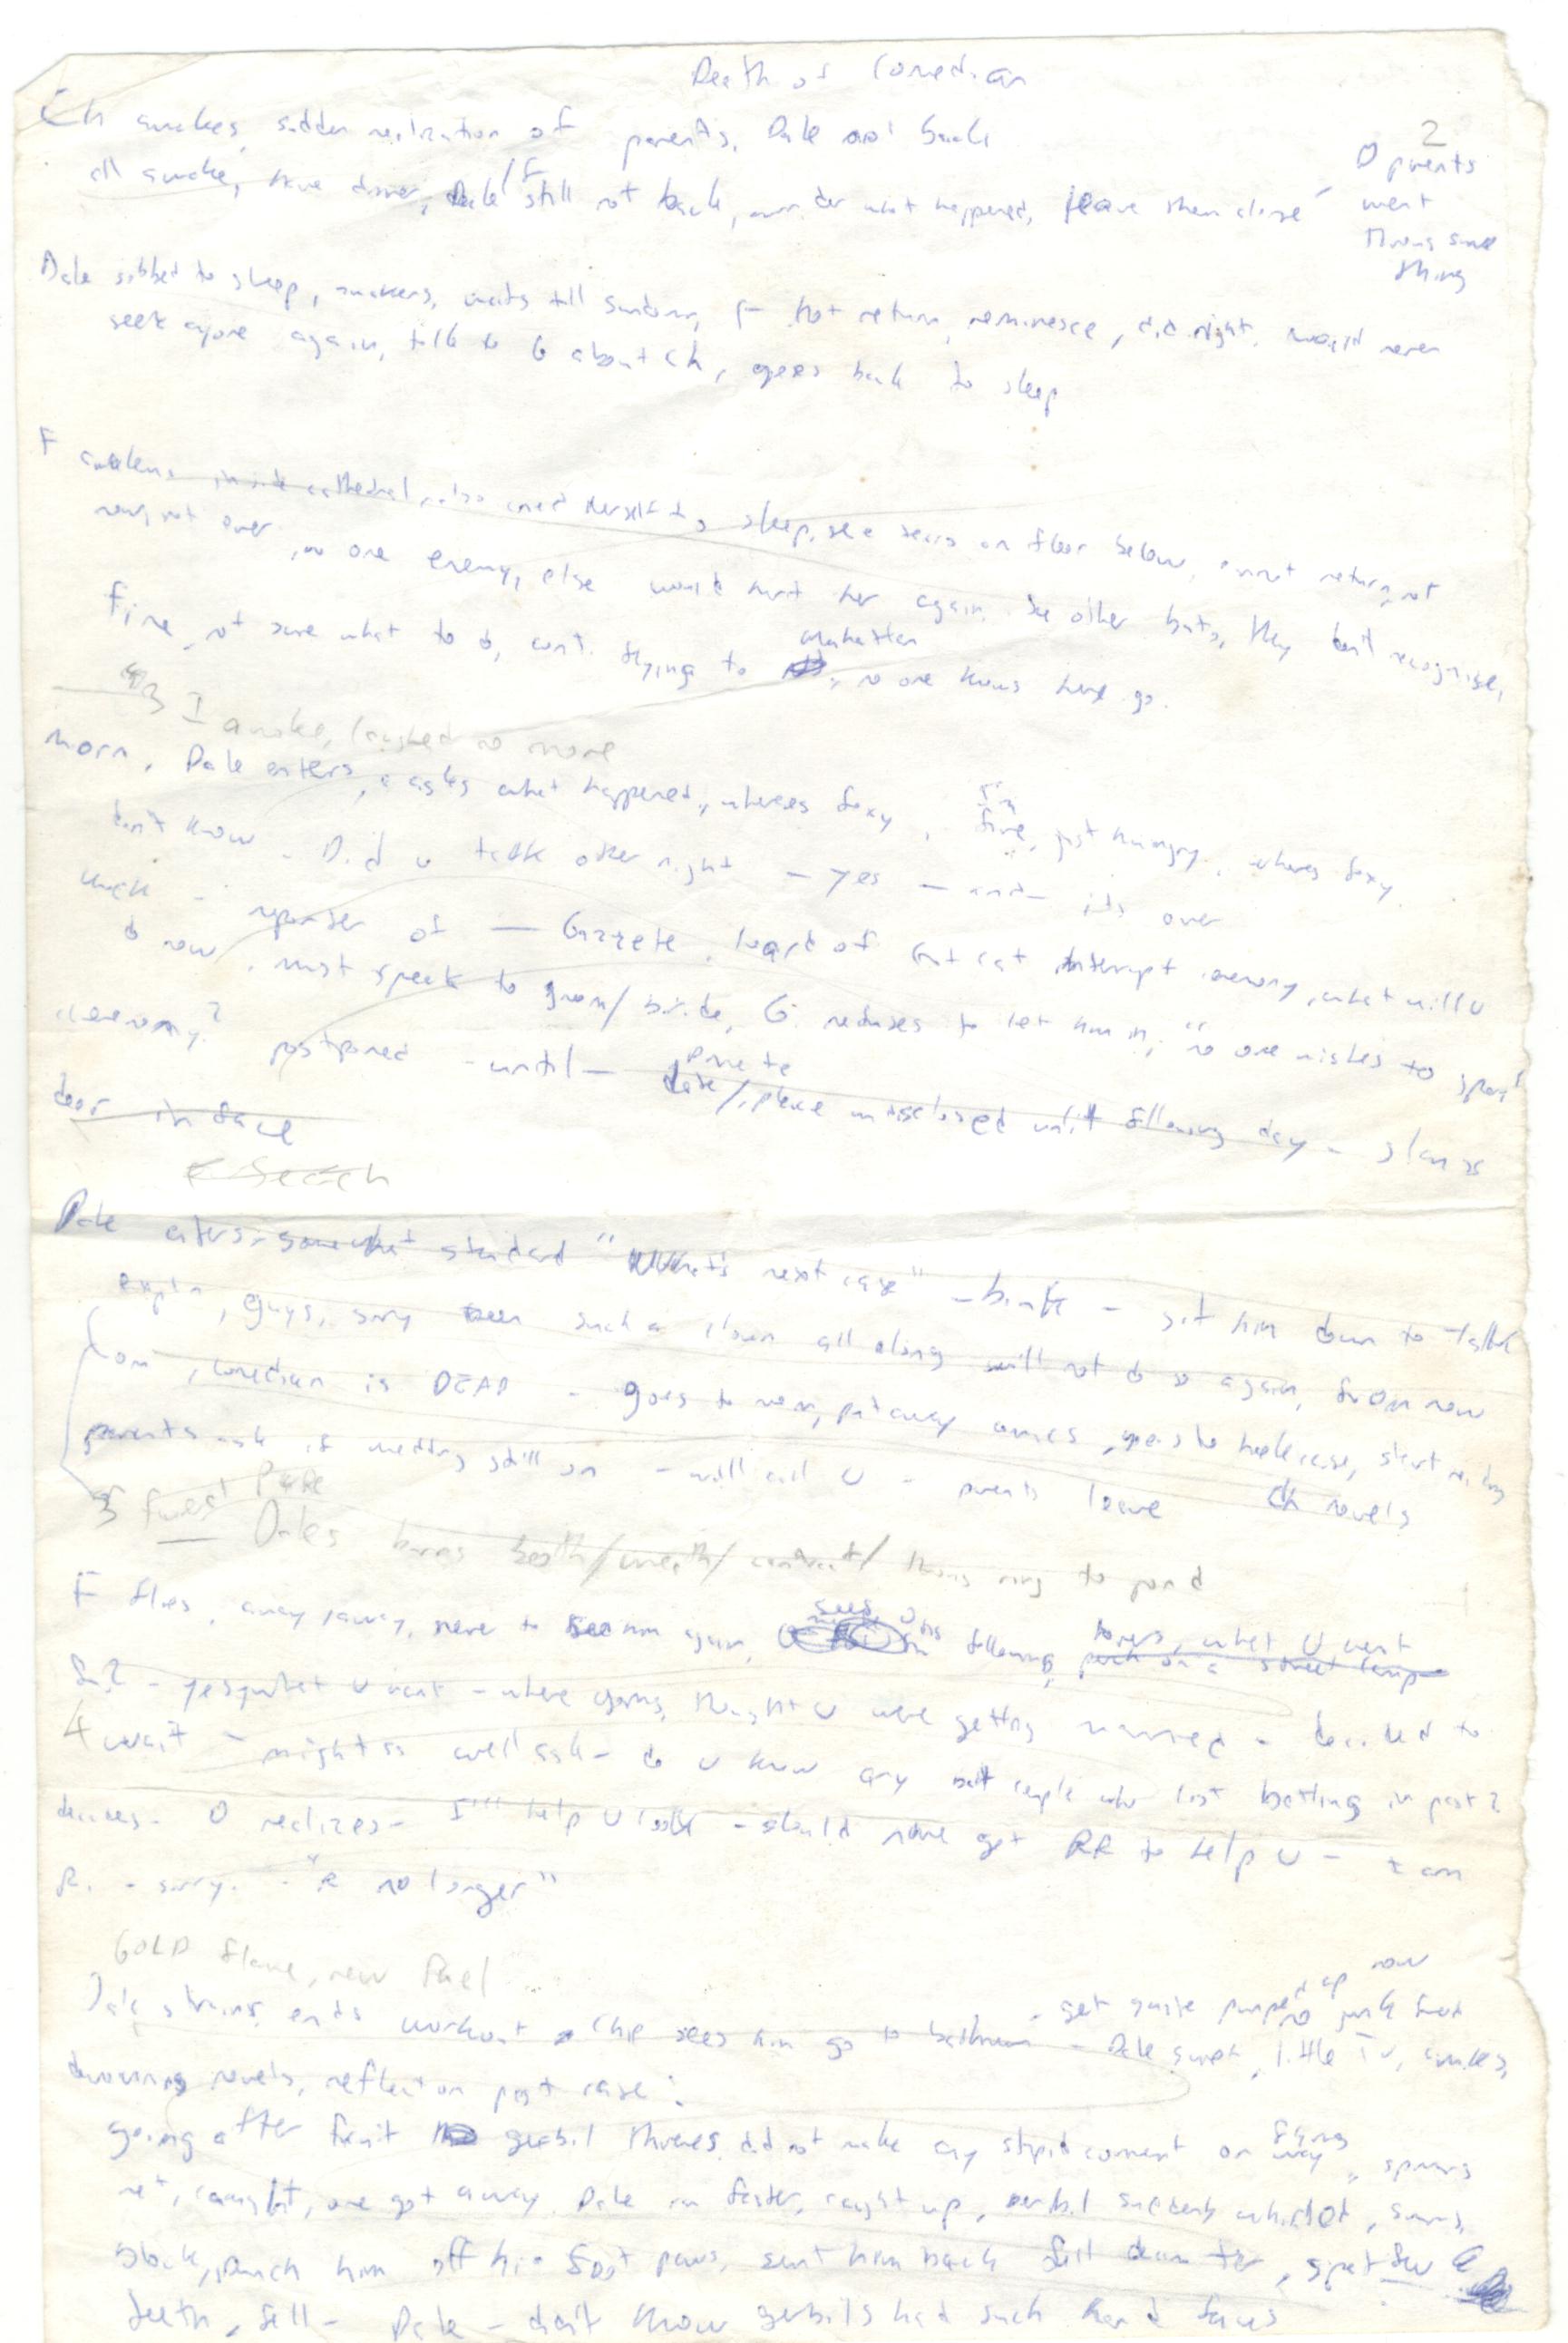 Death of Comedian
2
Ch awakes, sudden realization of parents, Dale not back
all awake, have dinner, Dale/F still not back, wonder what happened, leave them alone
D parents
went
through same
thing
Dale sobbed to sleep, awakens, waits till sundown, F not return, reminesce, did right, would never
seek anyone again, talk to G about Ch, goes back to sleep
F awakens inside cathedral, also cried herself to sleep, see tears on floor below, cannot return, not
now, not ever, no one enemy, else would hunt her again. See other bats, they don't recognise,
fine, not sure what to do, cont. flying to Manhattan, no one knows here go.
I awoke, laughed no more
Morn, Dale enters, asks what happened, wheres foxy, I'm fine, just hungry, wheres foxy.
don't know - Did u talk other night - yes - and - its over
knock - reporter of — Gazzete, heard of Fat Cat interrupt ceremony, what will u
do now, must speak to groom/bride, G. refuses to let him in, "no one wishes to speak"
ceremony? postponed - until - private
date/place undisclosed until following day - slams
door in face
Dale enters, somewhat standard "What's next case" - sit him down to talk
expln, guys, sorry been such a clown all along will not do so again, from now
on, comedian is DEAD - goes to room, put away comics, goes to bookcase, start reading
parents ask if wedding still on - will call U - parents leave
Ch novels
Dales burns booth/wreath/contract/throws ring to pond
F flies, away, away, never to see him again, sees O following, what U want
- yes, what U want - where going, thought U were getting married - decided to
4 wait - might as well ask - do U know any bat couple who lost batling in past?
- O realizes - I'll help U look - should have got RR to help U - I am
R. - sorry. - "R no longer"
GOLD flame, new fuel
Dale strains, ends workout, Chip sees him go to bathroom - get quite pumped up now
- Dale swept, little TV, comics, no junk food
devouring novels, reflect on past case:
going after fruit gerbil thieves, did not make any stupid comment on flying way, springs
net, caught, one got away. Dale ran faster, caught up, gerbil suddenly whirled,
block, punch him off his foot paws, sent him back, spat few
teeth, fell - Dale - didn't know gerbils had such hard faces